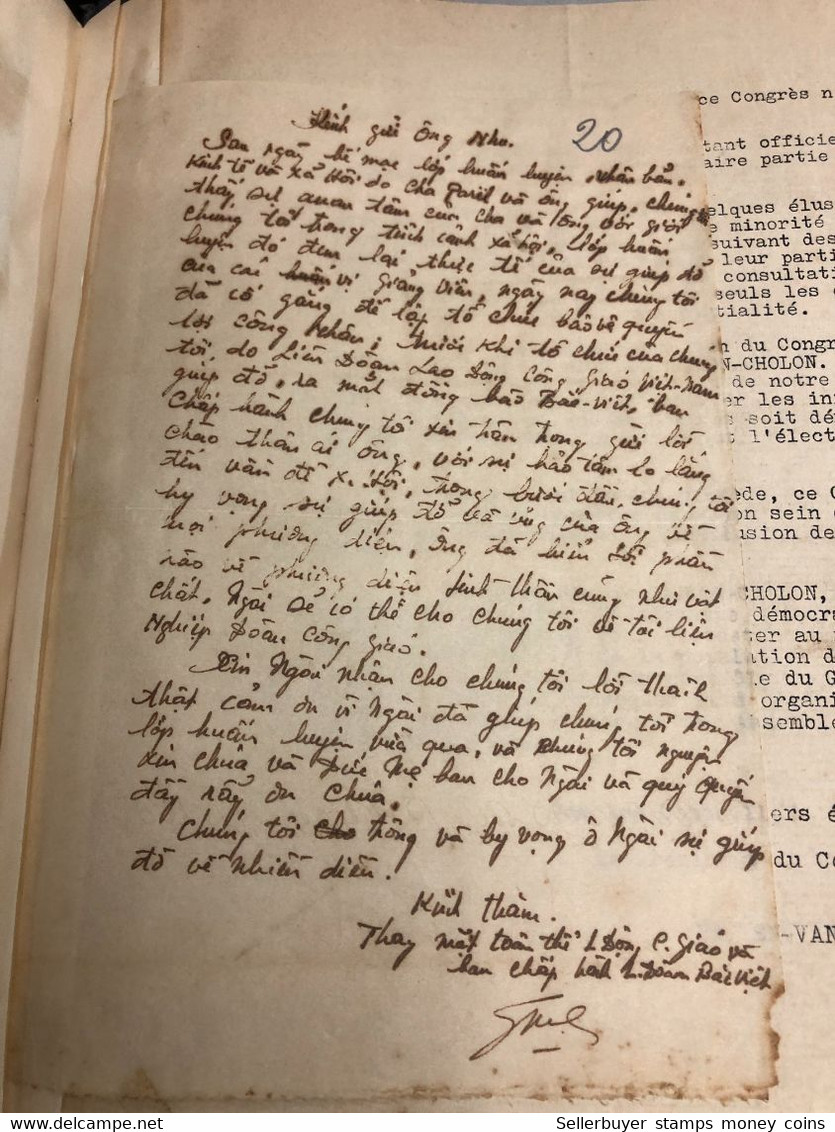 Kính gửi Ông Nhu. 20
Sau ngày bế mạc lớp huấn luyện nhân bản,
Kinh tế và xã Hội do cha Parit và ông giúp, chúng tôi
thấy sự quan tâm của cha và ông với giới
chúng tôi trong tình cảnh xã hội, lớp huấn
luyện đó đem lại, thực tế của sự giúp đỡ
của các vị Giảng viên, ngày nay chúng tôi
đã cố gắng để lập tổ chức bảo vệ quyền
lợi công nhân; trước khi tổ chức của chúng
tôi, do Liên Đoàn Lao Động Công Giáo Việt-Nam
giúp đỡ, ra mắt đồng bào Bảo-Việt, ban
Chấp hành chúng tôi xin trân trọng gửi lời
chào thân ái ông, với sự bảo tâm lo lắng
đến vấn đề x. Hội, trong bước đầu, chúng tôi
hy vọng sự giúp đỡ của ông về
mọi phương diện, ông đã hiểu
nào về phương diện tinh thần cũng như vật
chất, Ngài sẽ có thể cho chúng tôi về tài liệu
Nghiệp Đoàn công giáo.
Xin Ngài nhận cho chúng tôi lời thành
thật cảm ơn vì Ngài đã giúp chúng tôi trong
lớp huấn luyện vừa qua, và chúng tôi nguyện
xin chúa và Đức Mẹ ban cho Ngài và quý quyến
đầy rẫy ơn Chúa.
Chúng tôi trông và hy vọng ở Ngài sự giúp
đỡ về nhiều diện.
Kính thăm.
Thay mặt toàn thể L Động C. Giáo và
ban chấp hành L. Đoàn Bảo Việt
ce Congrès n
tant officie
aire partie
elques élus
e minorité
suivant des
leur parti
consultati
seuls les
tialité.
n du Congr
N-CHOLON.
de notre
er les in
s soit dé
t l'élect
ède, ce C
on sein
usion de
CHOLON,
démocra
ter au
lation d
le du G
organi
ssemblé
ers é
du Co
-VAN
Sellerbuyer stamps money coins